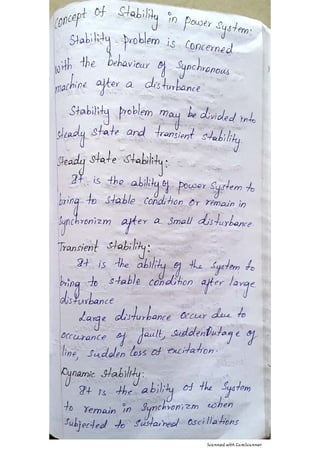 Concept of Stability in power System:
Stability problem is concerned
with the behaviour of Synchronous
machine after a disturbance
Stability problem may be divided into
steady state and transient stability.
Steady State Stability:
It is the ability of power System to
bring to stable condition or remain in
Synchronizm after a small disturbance
Transient Stability:
It is the ability of the System to
bring to stable condition after large
disturbance
Large disturbance occur due to
occurance of fault, sudden outage of
line, sudden loss of excitation.
Dynamic Stability:
It is the ability of the System
to remain in Synchronizm when
subjected to sustained oscillations
Scanned with CamScanner